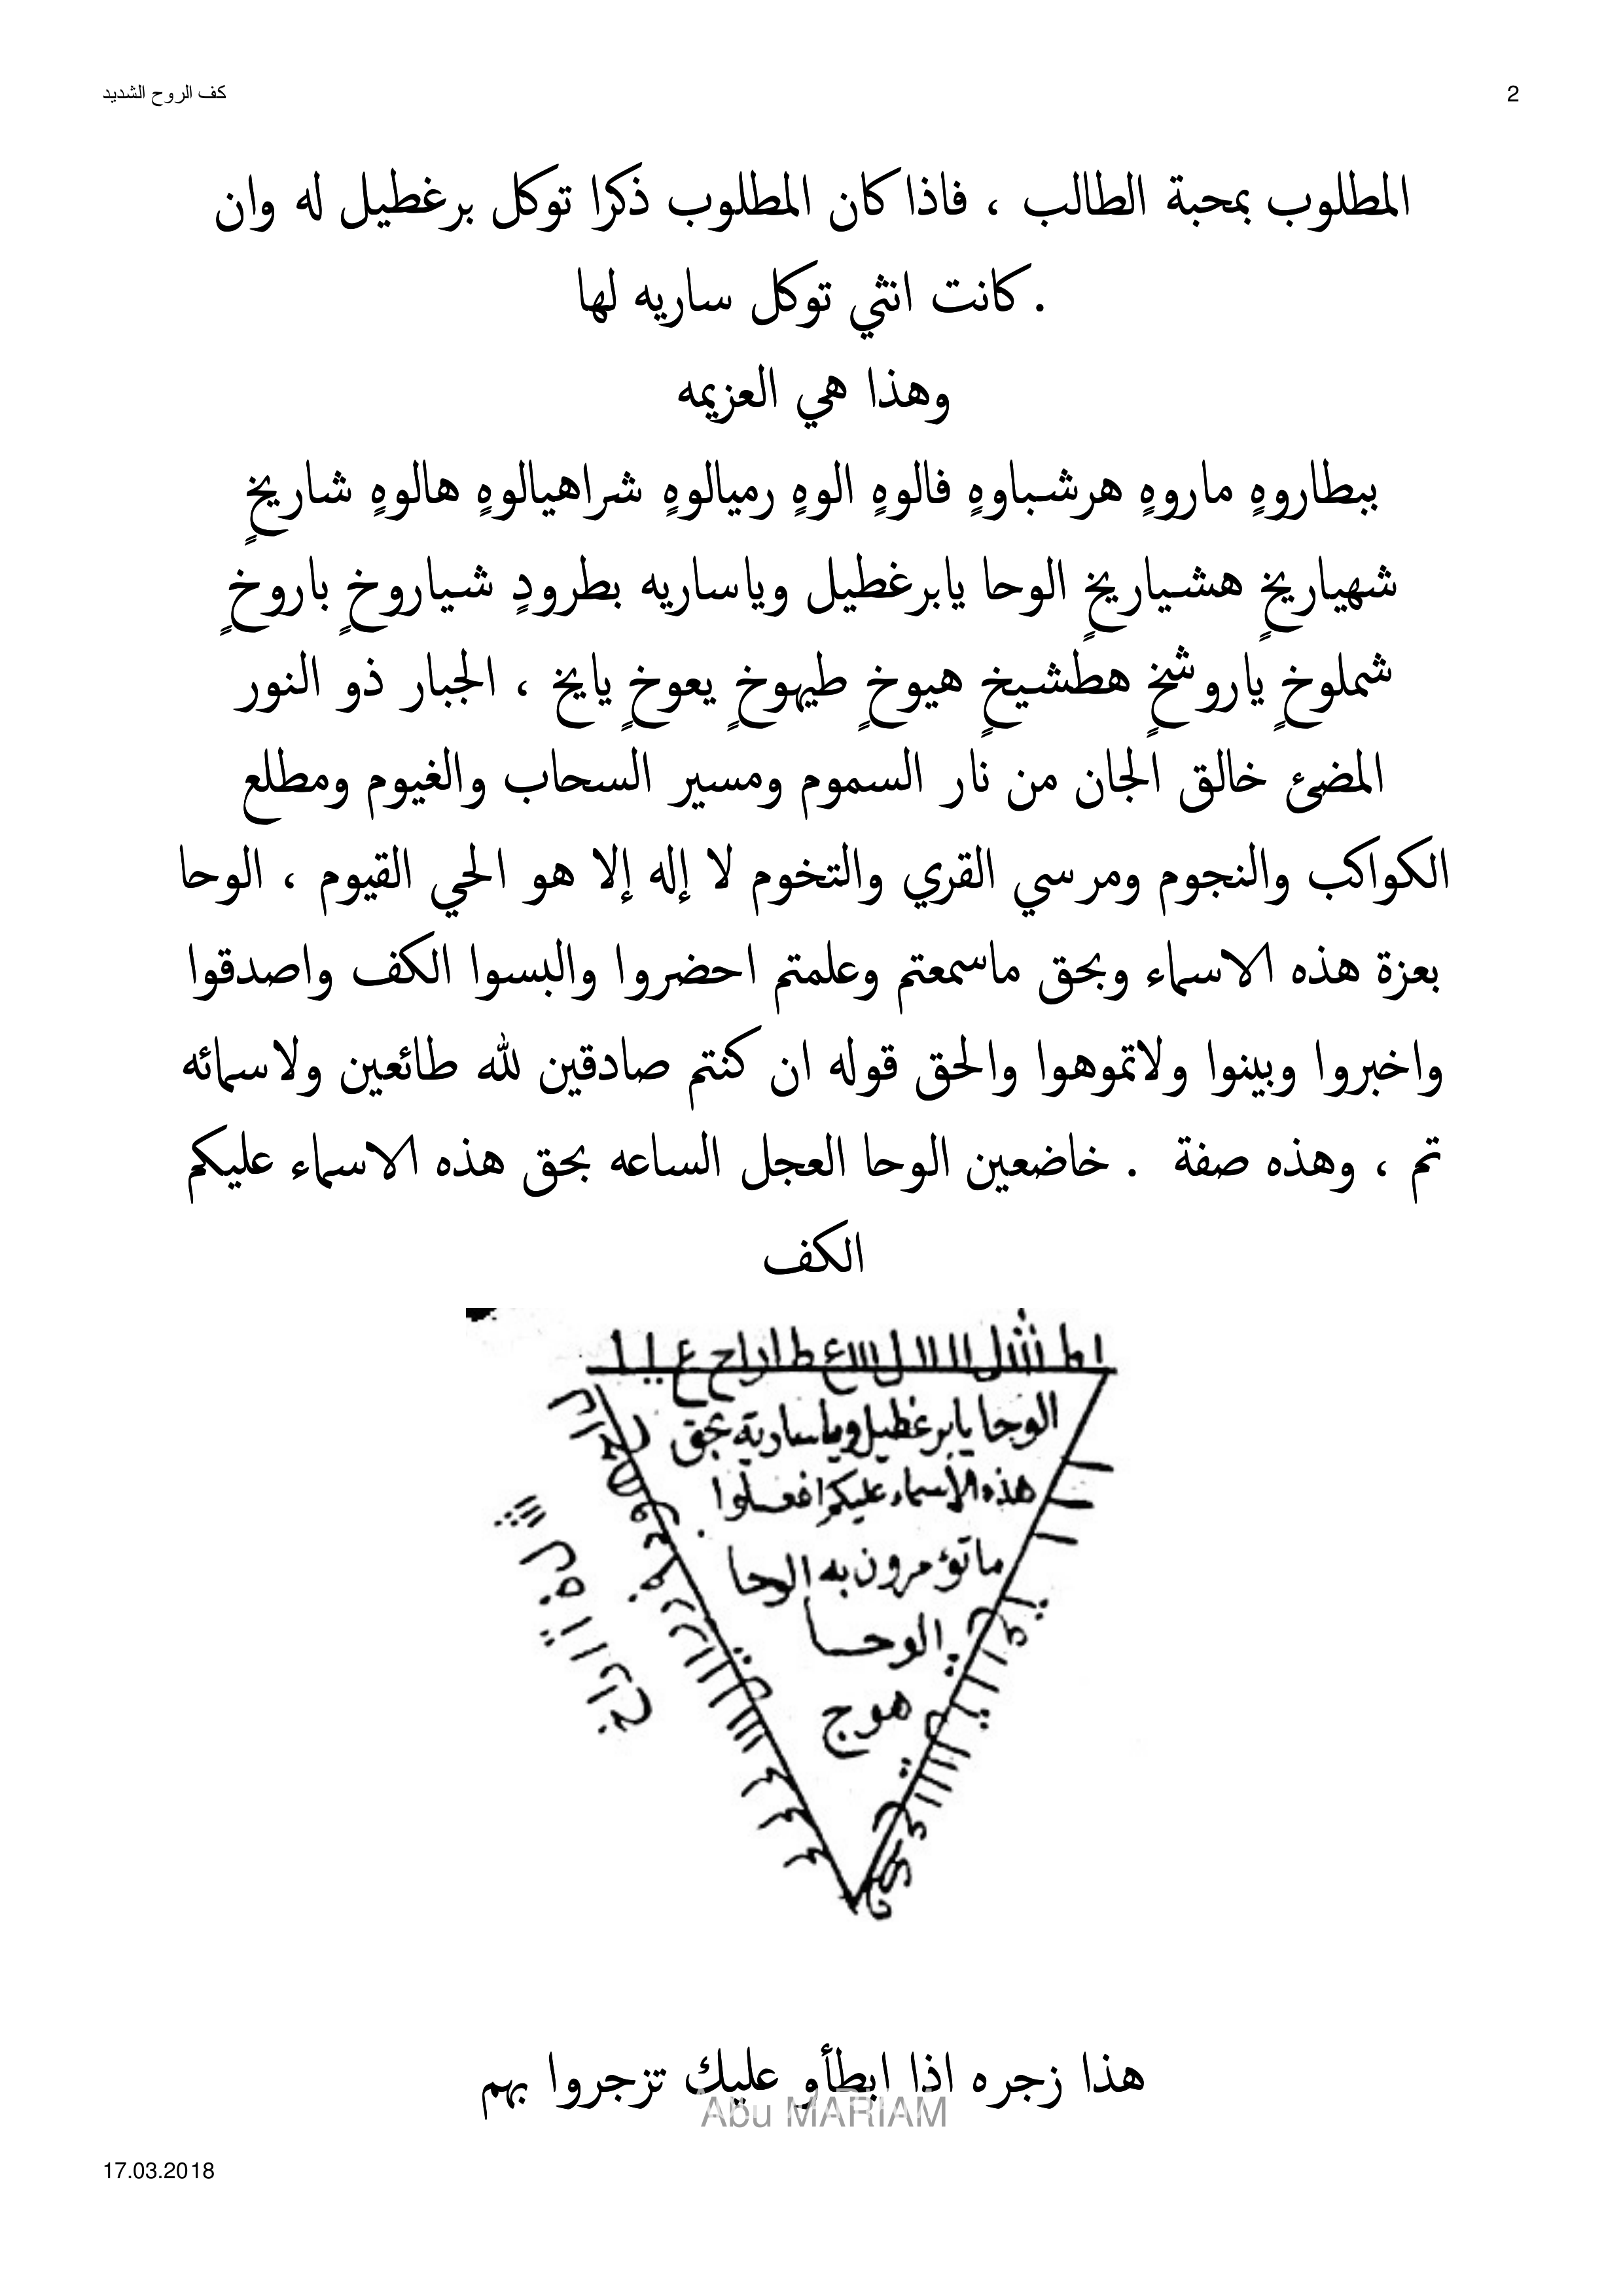 كف الروح الشديد
2
المطلوب بمحبة الطالب ، فاذا كان المطلوب ذكرا توكل برغطيل له وان
كانت انثي توكل ساريه لها .
وهذا هي العزيمه
ببطاروهٍ ماروهٍ هرشباوهٍ فالوهٍ الوهٍ رميالوهٍ شراهيالوهٍ هالوهٍ شاريخٍ
شهياريخٍ هشياريخٍ الوحا يابرغطيل وياساريه بطرودٍ شياروخٍ باروخٍ
شملوخٍ ياروشخٍ هطشيخٍ هيوخٍ طيهوخٍ يعوخٍ يايخ ، الجبار ذو النور
المضئ خالق الجان من نار السموم ومسير السحاب والغيوم ومطلع
الكواكب والنجوم ومرسي القري والتخوم لا إله إلا هو الحي القيوم ، الوحا
بعزة هذه الاسماء وبحق ماسمعتم وعلمتم احضروا والبسوا الكف واصدقوا
واخبروا وبينوا ولاتموهوا والحق قوله ان كنتم صادقين لله طائعين ولاسمائه
تم ، وهذه صفة . خاضعين الوحا العجل الساعه بحق هذه الاسماء عليكم
الكف
الوحا يابرغطيل وياسارية بحق
هذه الأسماء عليكم افعلوا
ما تؤمرون به الوحا
الوحا
هوج
هذا زجره اذا ابطأو عليك تزجروا بهم
Abu MARIAM
17.03.2018